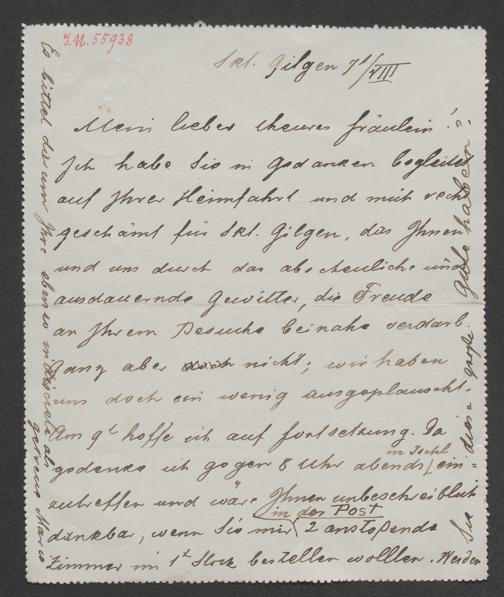 I.N. 55938
Skt. Gilgen 7t/VIII
Mein lieber theures Fräulein!
Ich habe Sie in Gedanken begleitet
auf Ihrer Heimfahrt und mich recht
geschämt für Skt. Gilgen, das Ihnen
und uns durch das abscheuliche und
ausdauernde Gewitter, die Freude
an Ihrem Besuche beinahe verdarb.
Ganz aber nicht; wir haben
uns doch ein wenig ausgeplauscht.
Am 9t hoffe ich auf Fortsetzung. Da
gedenke ich gegen 8 Uhr abends in Ischl ein-
zutreffen und wäre Ihnen unbeschreiblich
dankbar, wenn Sie mir in der Post 2 anstoßende
Zimmer im 1t Stock bestellen wollten. Werden
Sie diese große Güte haben?
Es bittet darum Ihre ebenso indiscrete als
getreue Marie